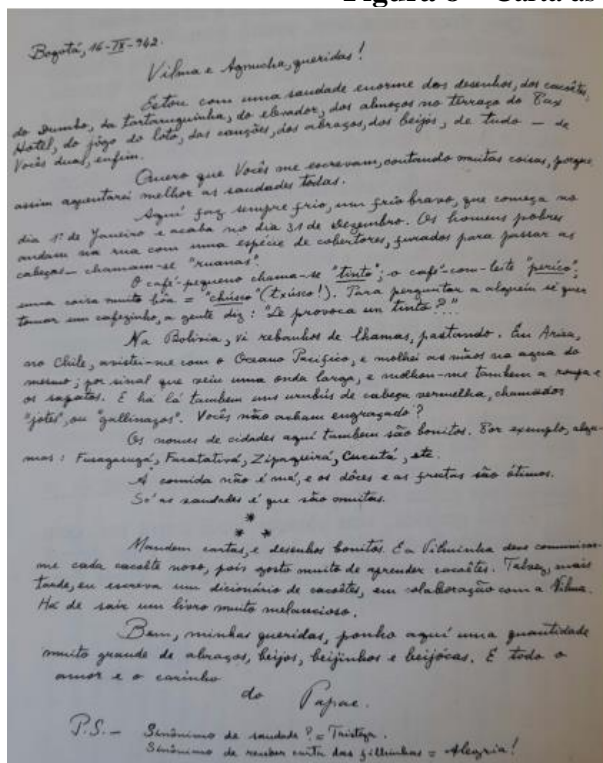 Figura 8 – Carta às
Bogotá, 16-IX-942.
Vilma e Agnucha, queridas!
Estou com uma saudade enorme dos desenhos, dos cacoêtes,
do Dumbo, da tartaruguinha, do elevador, dos almoços no terraço do Tax
Hotel, do jôgo do loto, das canções, dos abraços, dos beijos, de tudo — de
Vocês duas, enfim.
Quero que Vocês me escrevam, contando muitas coisas, porque
assim aguentarei melhor as saudades todas.
Aqui faz sempre frio, um frio bravo, que começa no
dia 1º de Janeiro e acaba no dia 31 de dezembro. Os homens pobres
andam na rua com uma espécie de cobertores, furados para passar as
cabeças — chamam-se "ruanas".
O café-pequeno chama-se "tinto"; o café-com-leite "perico";
uma coisa muito bôa = "chúsco" (txúsco!). Para perguntar a alguem si quer
tomar um cafezinho, a gente diz: "Le provoca un tinto?..."
Na Bolivia, vi rebanhos de lhamas, pastando. Em Arica,
no Chile, avistei-me com o Oceano Pacífico, e molhei as mãos na agua do
mesmo; por sinal que veiu uma onda larga, e molhou-me tambem a roupa e
os sapatos. E há lá tambem uns urubús de cabeça vermelha, chamados
"jotes", ou "gallinazos". Vocês não acham engraçado?
Os nomes de cidades aqui tambem são bonitos. Por exemplo, algu-
mas: Fusagasugá, Facatativá, Zipaquirá, Cucutá, etc.
A comida não é má, e os dôces e as frutas são ótimos.
Só as saudades é que são muitas.
*
* *
Mandem cartas, e desenhos bonitos. E a Vilminha deve comunicar-
me cada cacoête novo, pois gosto muito de aprender cacoêtes. Talvez, mais
tarde, eu escreva um dicionário de cacoêtes, em colaboração com a Vilma.
Há de sair um livro muito melancioso.
Bem, minhas queridas, ponho aqui uma quantidade
muito grande de abraços, beijos, beijinhos e beijócas. E todo o
amor e o carinho
do
Papae.
P.S. — Sinônimo de saudade? = Tristeza.
Sinônimo de receber carta das filhinhas = Alegria!